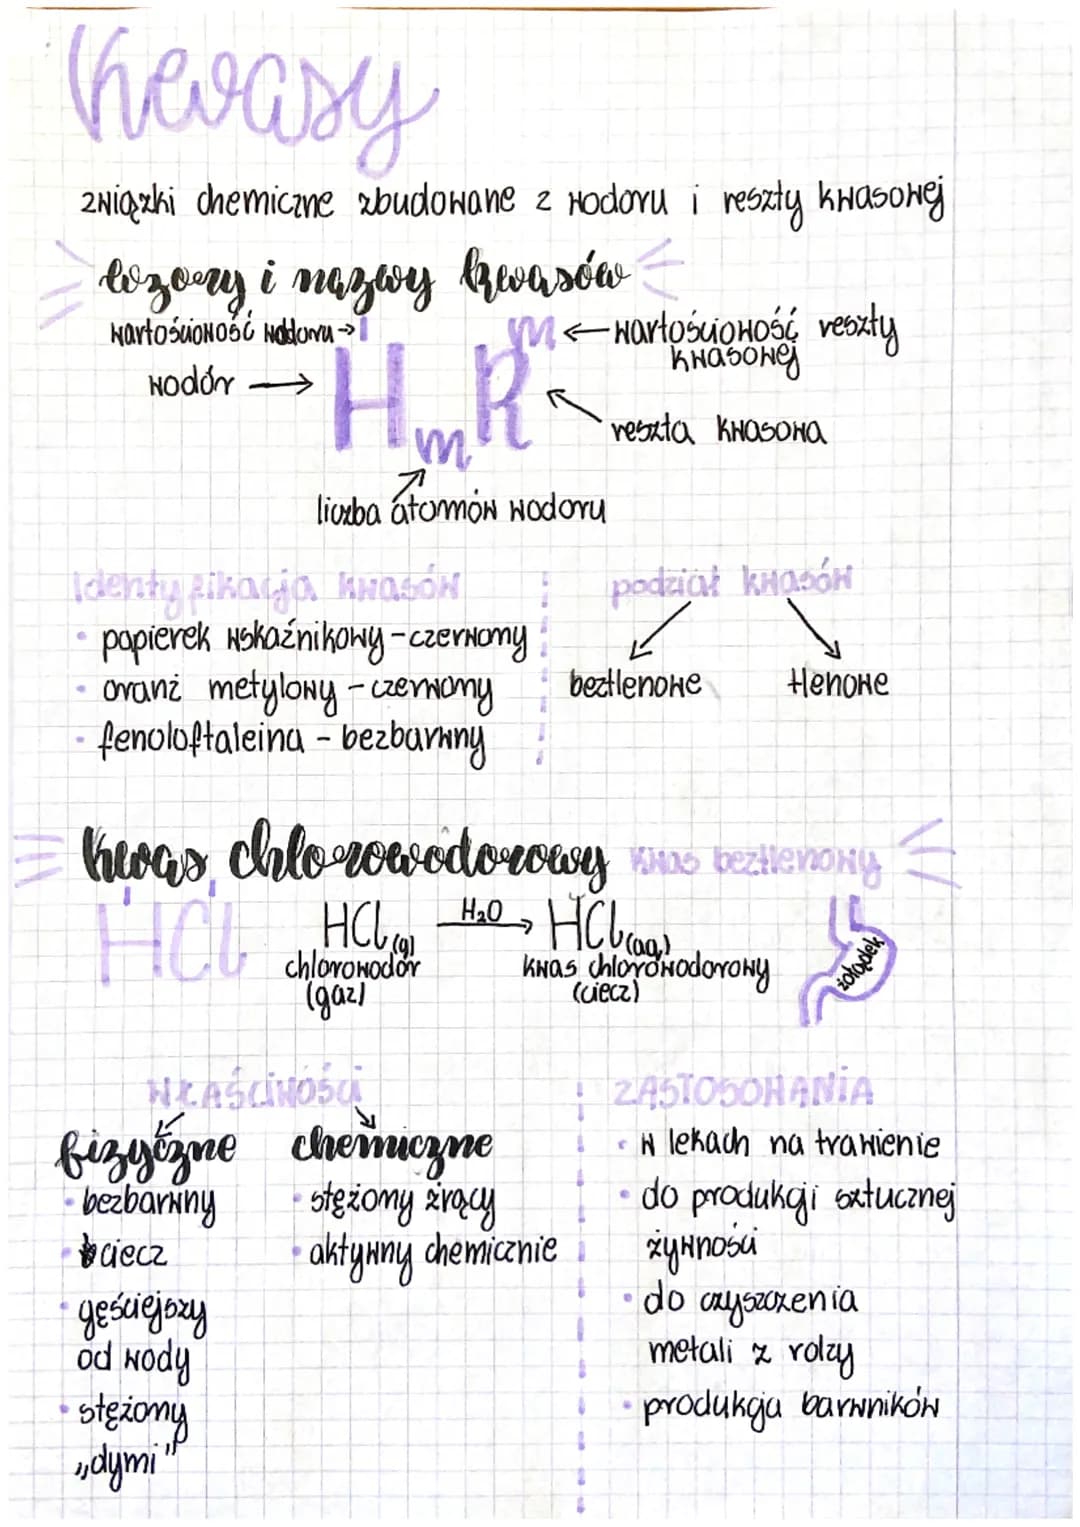 Kwasy
związki chemiczne zbudowane z wodoru i reszty kwasowej
wzory i nazwy kwasów
wartościowość wodoru → I
m ← wartościowość reszty
kwasowej
wodór → H m R
reszta kwasowa
liczba atomów wodoru
Identyfikacja kwasów
• papierek wskaźnikowy - czerwony
• oranż metylowy - czerwony
• fenoloftaleina - bezbarwny
podział kwasów
beztlenowe tlenowe
kwas chlorowodorowy kwas beztlenowy
HCl
HCl(g) H₂O → HCl(aq)
chlorowodór kwas chlorowodorowy
(gaz) (ciecz)
żołądek
WŁAŚCIWOŚCI
fizyczne chemiczne
• bezbarwny
• ciecz
• gęściejszy
od wody
• stężony
„dymi"
• stężony żrący
• aktywny chemicznie
ZASTOSOWANIA
• w lekach na trawienie
• do produkcji sztucznej
żywności
• do czyszczenia
metali z rdzy
• produkcja barwników